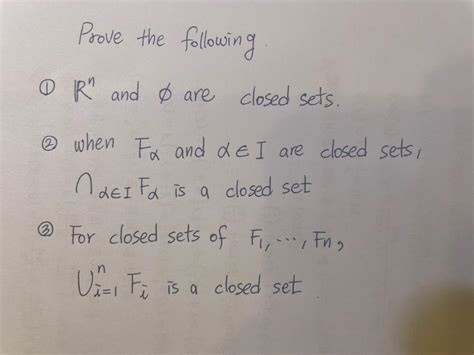 Prove the following.
① ℝⁿ and ∅ are closed sets.
② when Fα and α∈I are closed sets,
⋂α∈I Fα is a closed set
③ For closed sets of F₁, ⋯, Fn,
⋃ⁿi=1 Fi is a closed set